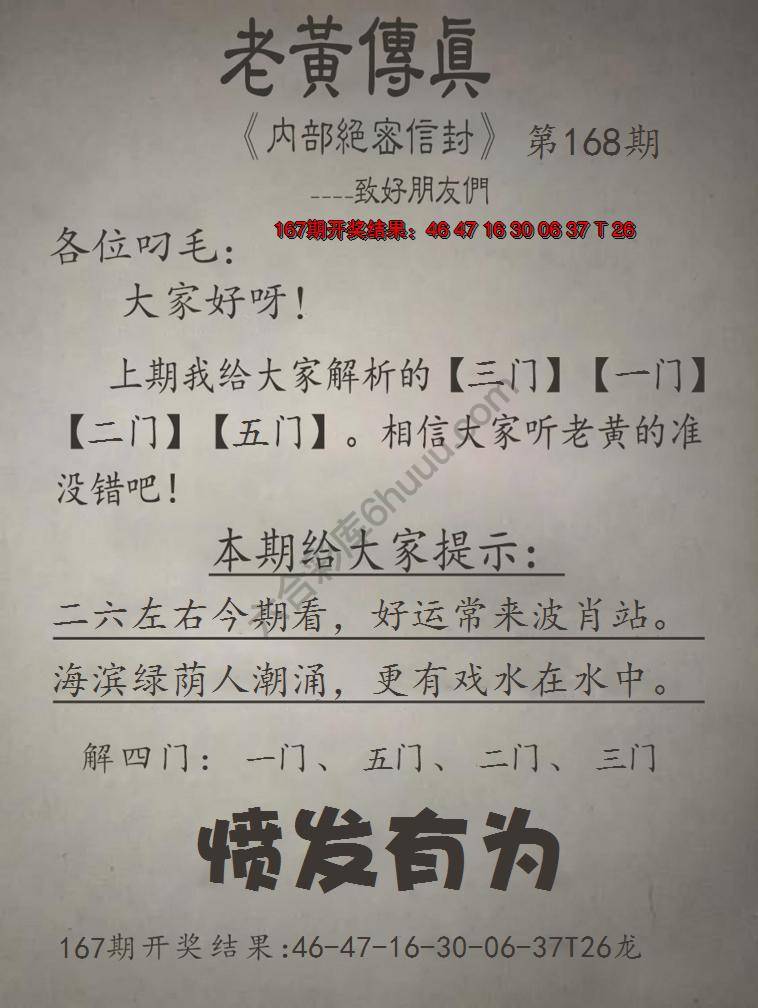 老黃傳眞
《内部絕密信封》 第168期
----致好朋友們
167期开奖结果：46 47 16 30 06 37 T 26
各位叼毛：
大家好呀！
上期我给大家解析的【三门】【一门】
【二门】【五门】。相信大家听老黄的准
没错吧！
六合彩库6huuu.com
本期给大家提示：
二六左右今期看，好运常来波肖站。
海滨绿荫人潮涌，更有戏水在水中。
解四门：一门、五门、二门、三门
愤发有为
167期开奖结果:46-47-16-30-06-37T26龙